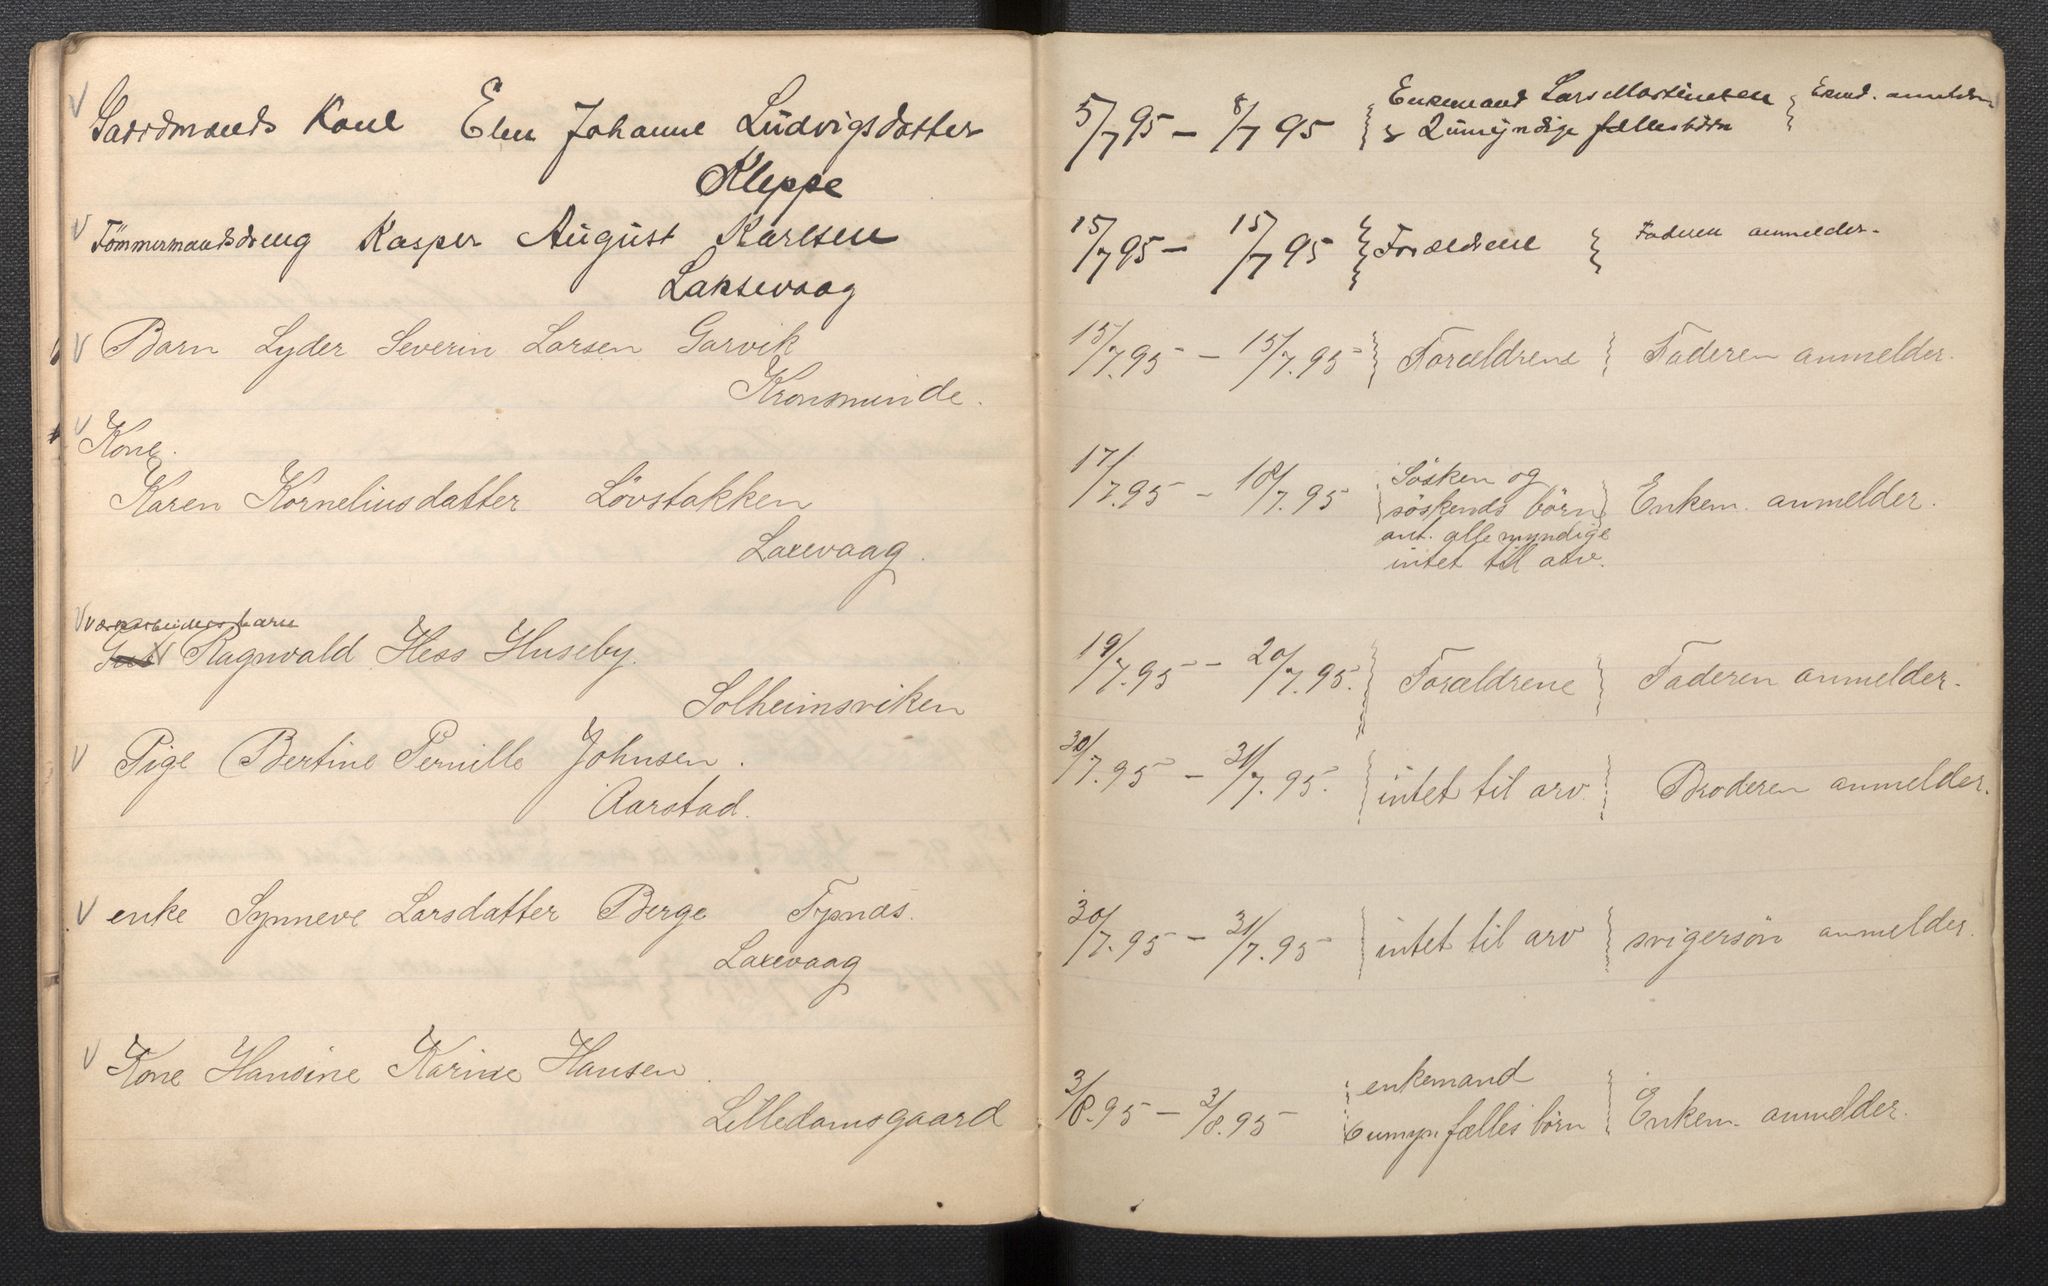 V Gaardmands Kone Elen Johanne Ludvigsdatter
Kleppe
V Tömmermandsdreng Kasper August Karlsen
Laksevaag
V Barn Lyder Severin Larsen Garvik
Kronsminde.
V Kone.
Karen Korneliusdatter Lövstakken
Laxevaag.
V værkarbeidersbarn
Ragnvald Hess Huseby.
Solheimsviken
V Pige Bertine Pernille Johnsen.
Aarstad.
V enke Synneve Larsdatter Berge
Laxevaag
V Kone Hansine Karine Hansen.
Lilledamsgaard
5/7 95 - 8/7 95 Enkemand Lars Martinsen
& 2 umyndige fællesbörn
15/7 95 - 15/7 95 Forældrene Faderen anmelder.
15/7.95 - 15/7.95 Forældrene Faderen anmelder.
17/7.95 - 18/7.95 Sösken og
söskends börn Enkem. anmelder.
ant. alle myndige
intet til arv.
19/7.95 - 20/7.95. Forældrene Faderen anmelder.
30/7.95 - 31/7.95. intet til arv Broderen anmelder.
30/7.95 - 31/7.95 intet til arv svigersön anmelder.
3/8.95 - 3/8.95 enkemand
6 umyn. fælles börn Enkem. anmelder.